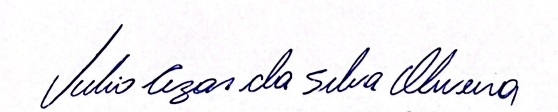 Julio Cezar da Silva Oliveira